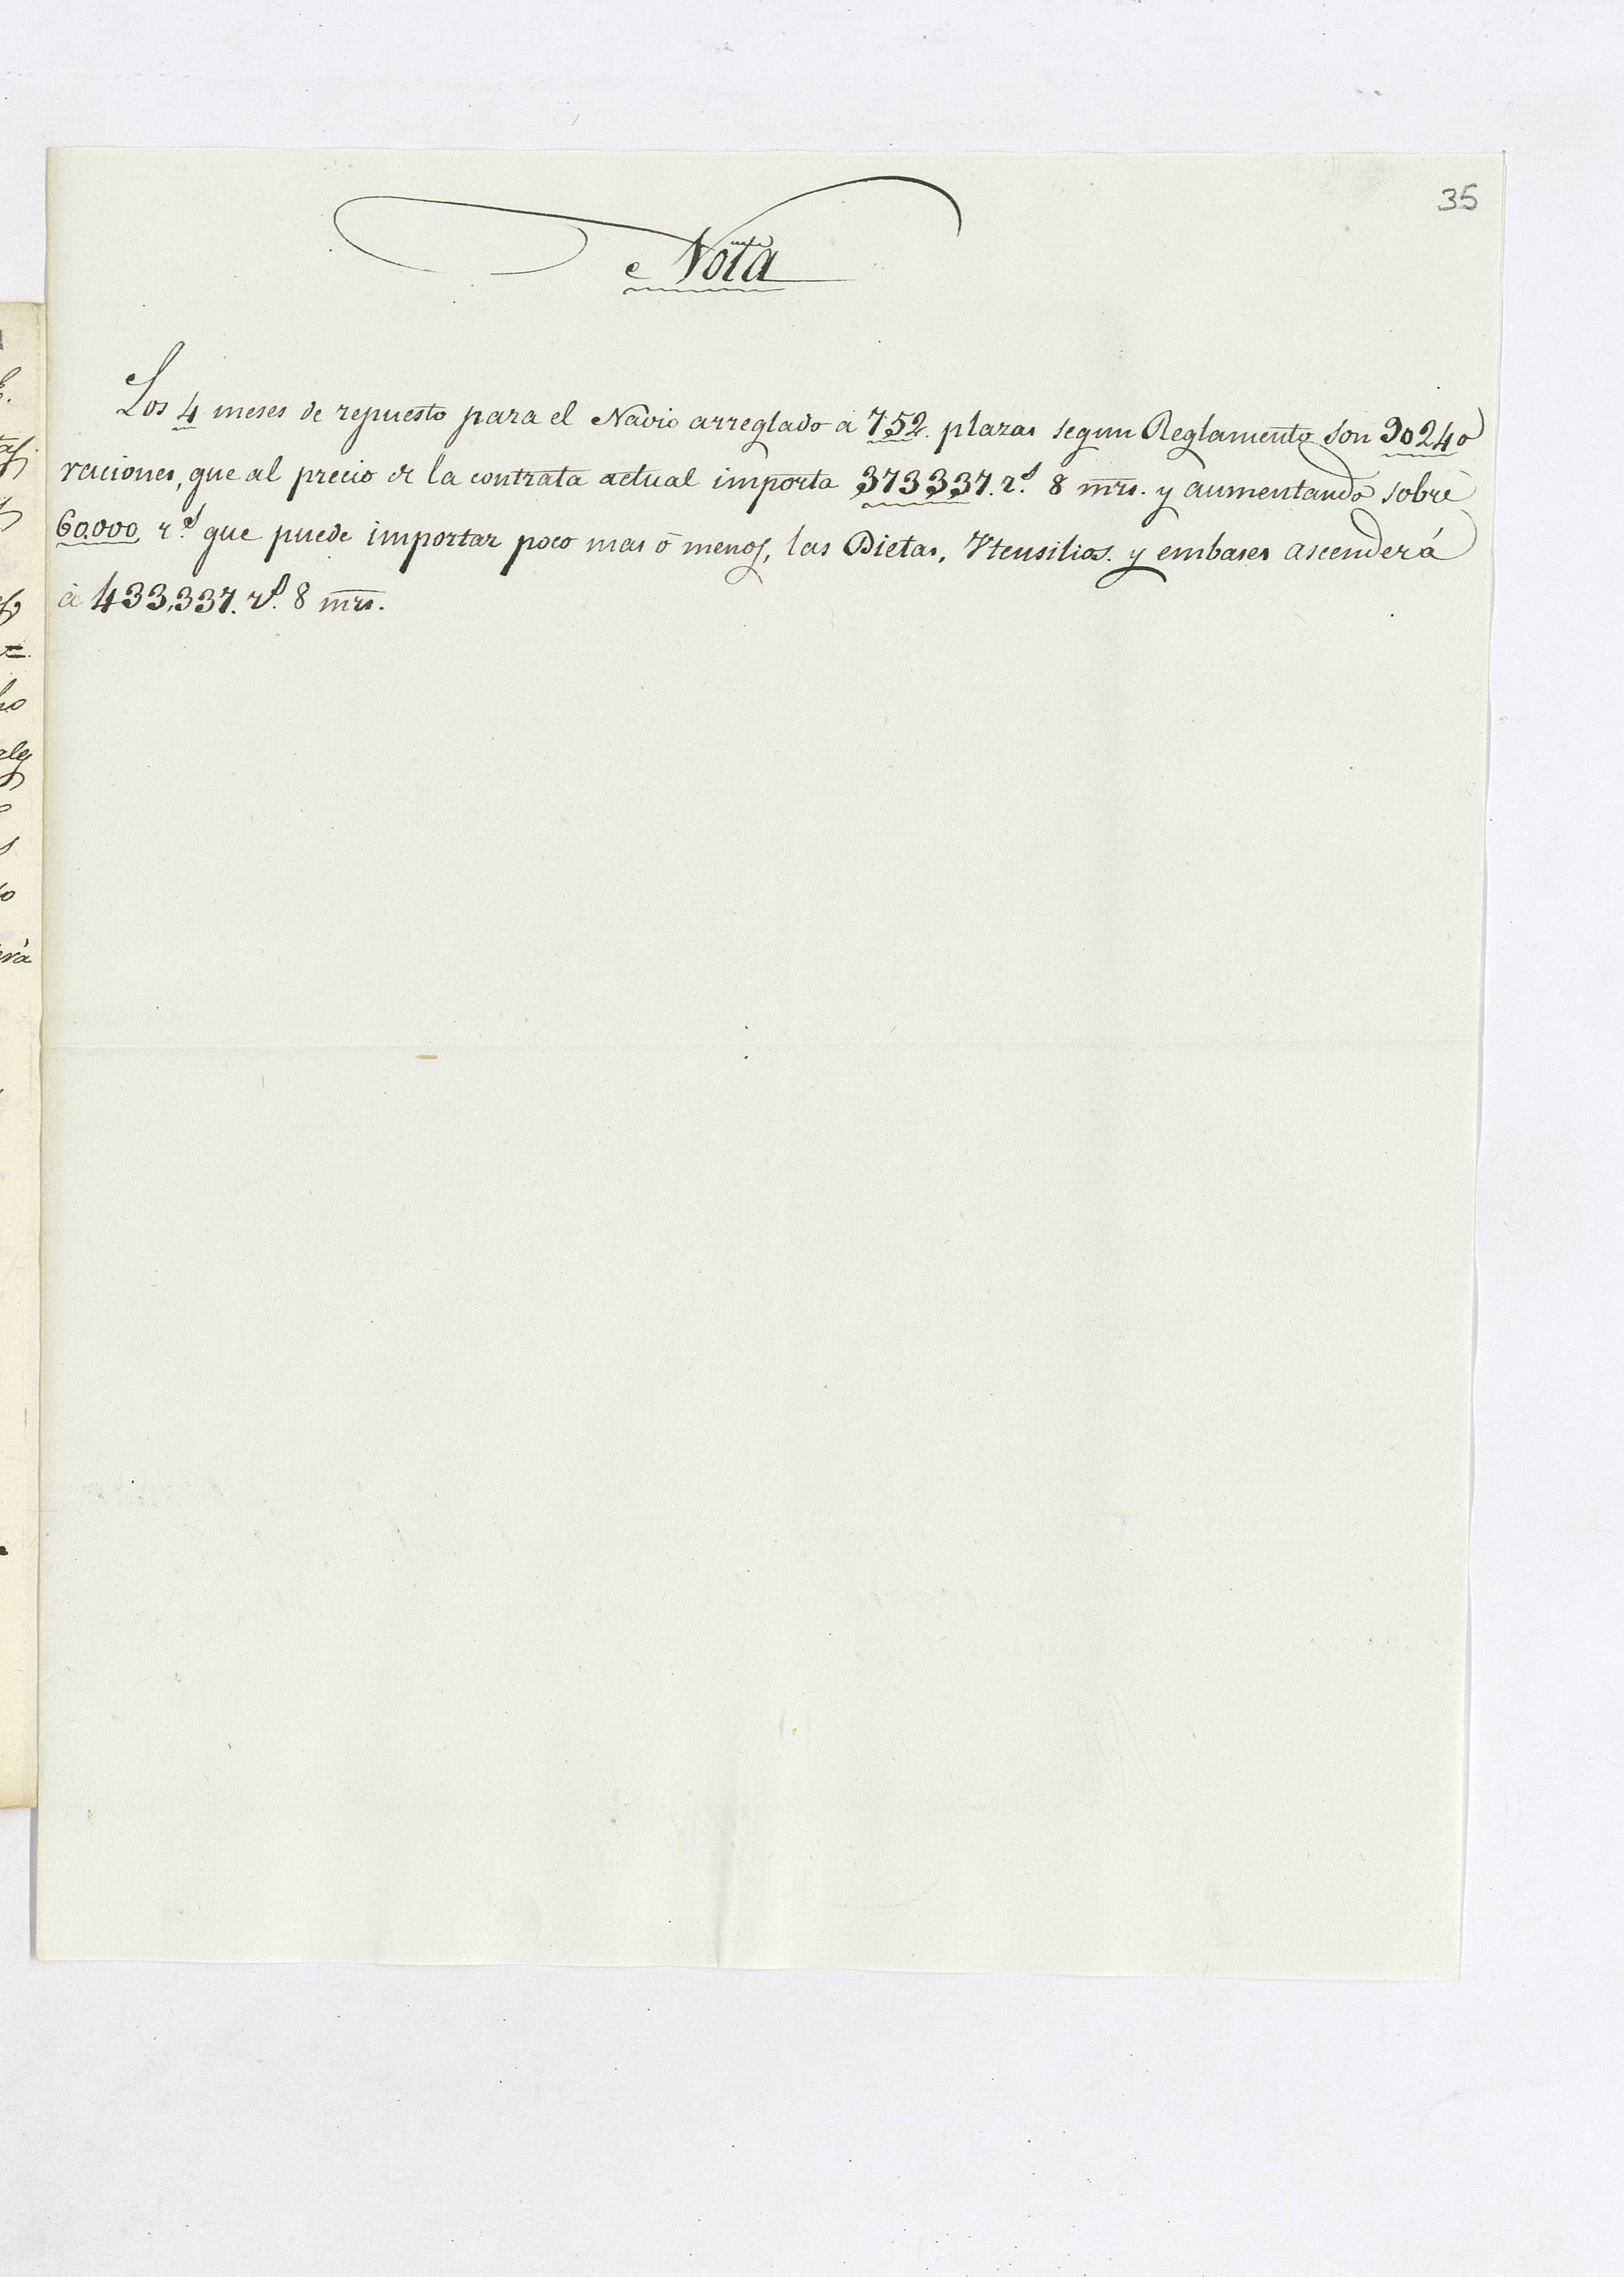 35
Nota
Los 4 meses de repuesto para el Navio arreglado á 752 plazas segun Reglamento son 90240
raciones, que al precio de la contrata actual importa 373337. r.s 8 mrs. y aumentando sobre
60.000 r.s que puede importar poco mas ó menos, las Dietas, Vtensilios. y embases ascenderá
á 433,337. r.s 8 mrs.